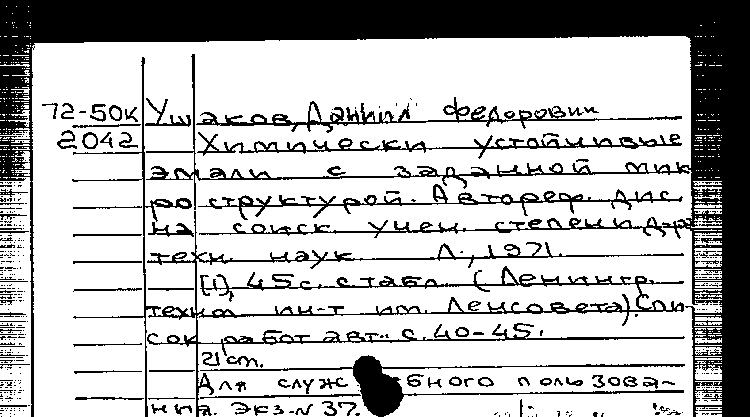 72-50к Ушаков, Даниил Федорович
2042 Химически устойчивые
эмали с заданной мик
ро структурой. Автореф. дис.
на соиск учен. степени д-ра
техн. наук Л., 1971.
[1], 45с. с табл (Ленингр.
технол ин-т им. Ленсовета). Спи-
сок работ авт.: с. 40-45.
21см.
Для служ бного пользова-
ния. Экз. N 37.